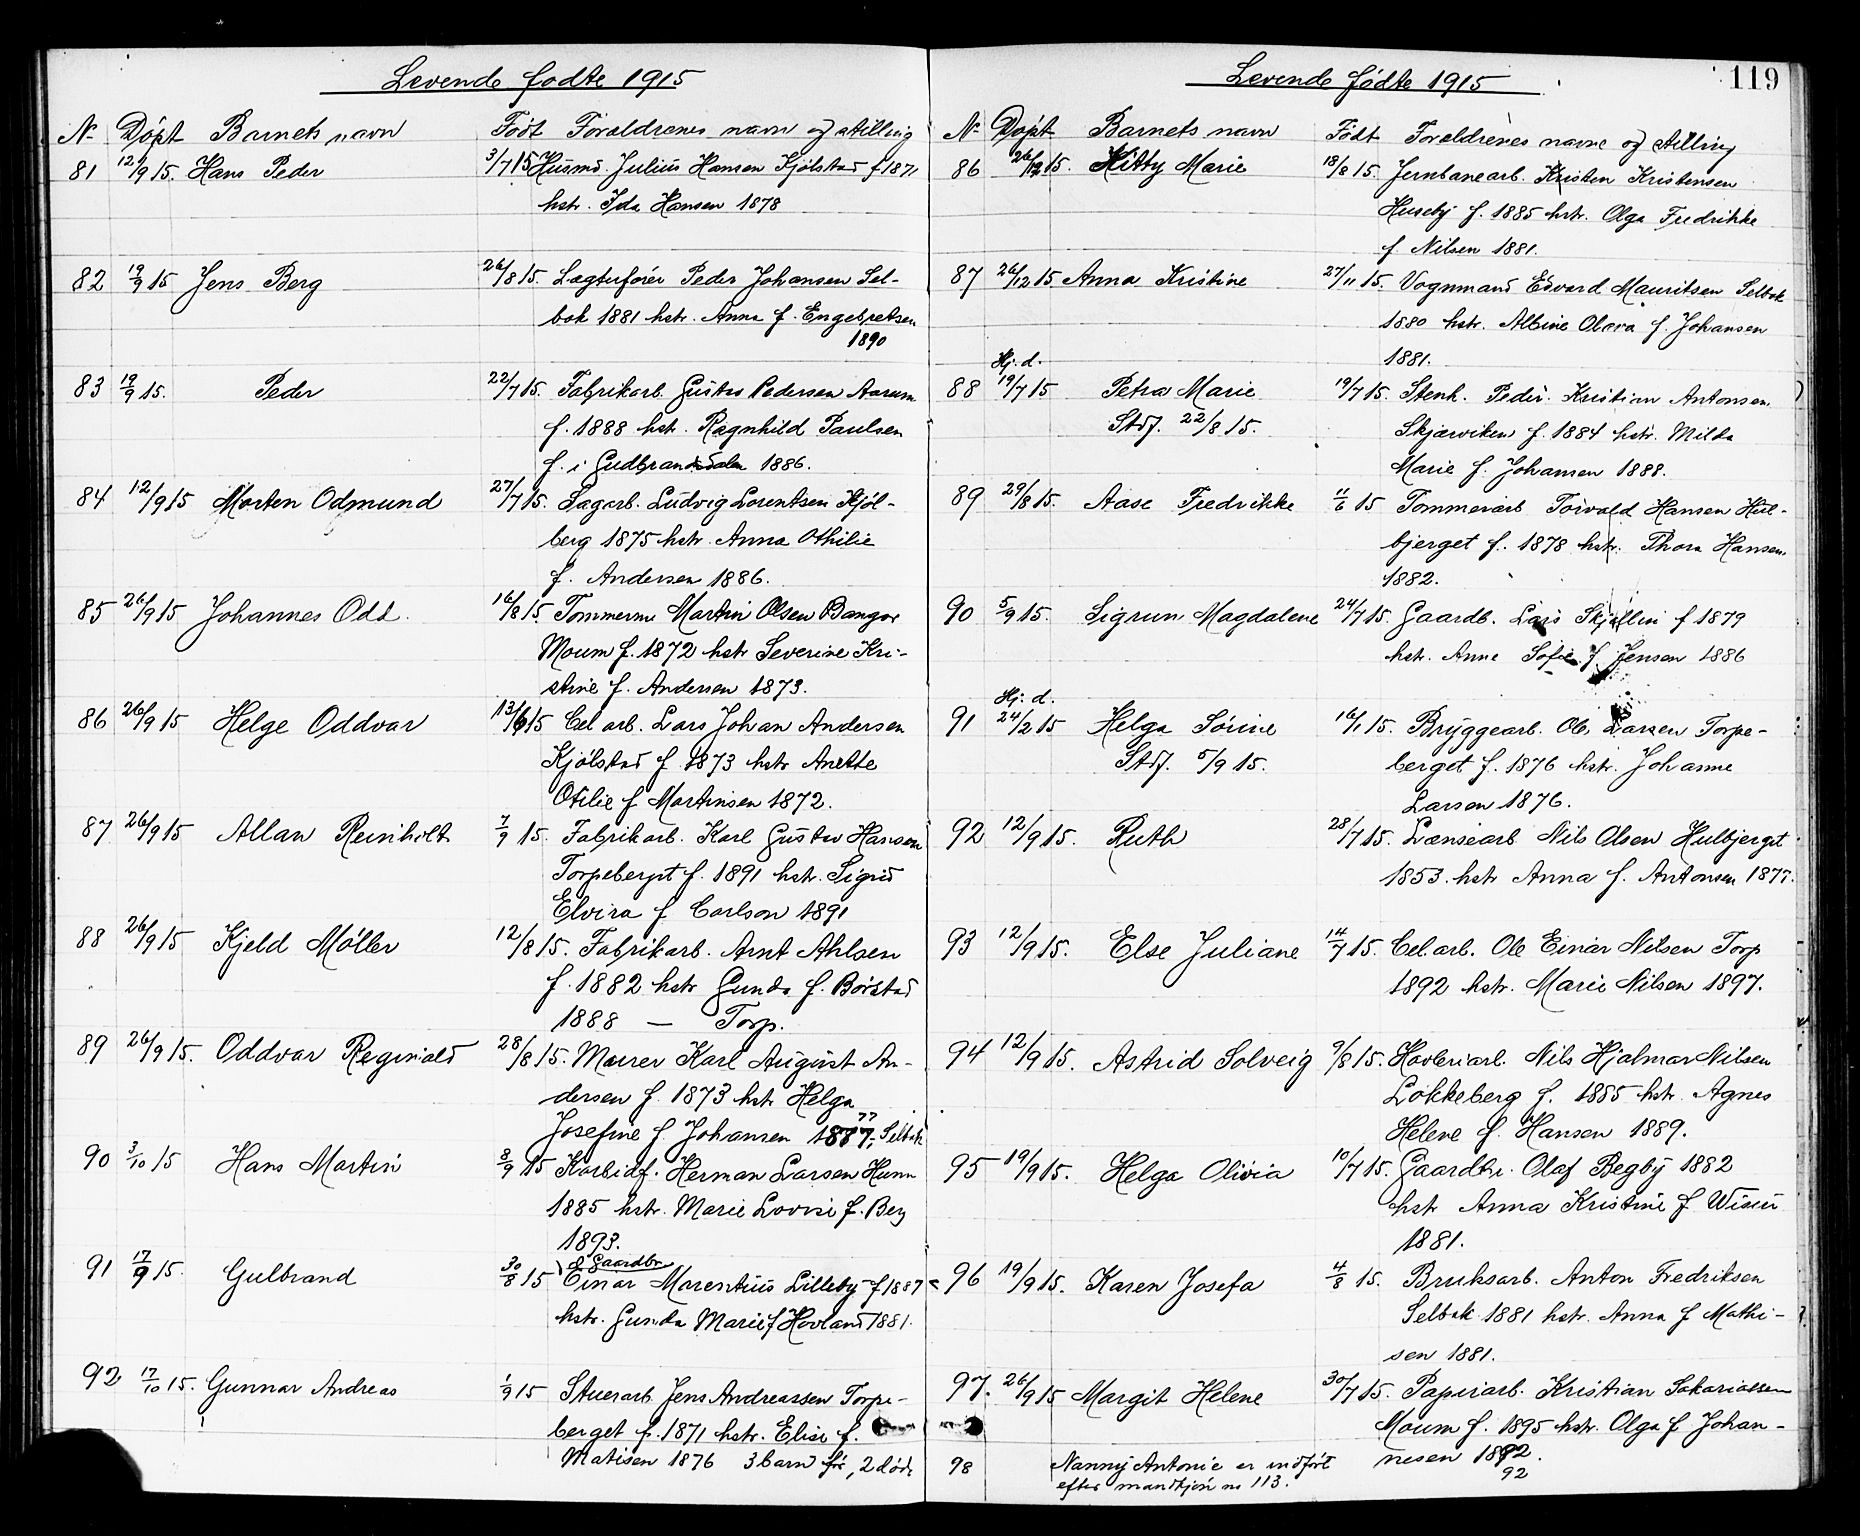 Levende fødte 1915
No Döpt Barnets navn Födt Foreldrenes navn og stilling
81 12/9 15. Hans Peder 3/7 15 Husmd. Julius Hansen Kjölstad f 1871
hstr. Ida Hansen 1878
82 19/9 15 Jens Berg 26/8 15. Lagterförer Peder Johansen Sel-
bak 1881 hstr. Anna f. Engebretsen
1890
83 19/9 15. Peder 22/7 15. Fabrikarb. Gustav Pedersen Aarum
f. 1888 hstr. Ragnhild Paulsen
f. i Gudbrandsdalen 1886.
84 12/9 15 Morten Odmund 27/7 15. Sagarb. Ludvig Lorentsen Kjöl-
berg 1875 hstr. Anna Othilie
f. Andersen 1886.
85 26/9 15 Johannes Odd. 16/8 15. Tömmerm Martin Olsen Bangor
Moum f. 1872 hstr Severine Kri-
stine f. Andersen 1873.
86 26/9 15 Helge Oddvar 13/6 15 Cel arb. Lars Johan Andersen
Kjölstad f. 1873 hstr Anette
Otilie f Martinsen 1872.
87 26/9 15 Allan Reinholt 7/9 15. Fabrikarb. Karl Gustav Hansen
Torpeberget f. 1891 hstr. Sigrid
Elvira f Carlson 1891
88 26/9 15 Kjeld Möller 12/8 15. Fabrikarb. Arnt Ahlsen
f. 1882 hstr Gunda f. Börstad
1888 — Torp.
89 26/9 15. Oddvar Reginald 28/8 15. Murer Karl August An-
dersen f. 1873 hstr Helga
77
Josefine f Johansen 1877, Selbak
90 3/10 15 Hans Martin 8/9 15 Karbidf. Herman Larsen Hunn
1885 hstr. Marie Lovise f. Berg
1893.
& Gaardbr
91 17/9 15. Gulbrand 30/8 15 Einar Marentius Lilleby f 1887
hstr. Gunda Marie f Hovland 1881.
92 17/10 15. Gunnar Andreas 1/9 15 Stuerarb. Jens Andreassen Torpe-
berget f. 1871 hstr. Elise f.
Matisen 1876 3 barn för, 2 död.
119
Levende fødte 1915
No Döpt Barnets navn Födt Foreldrenes navne og stilling
86 26/12 15. Kitty Marie 18/8 15. Jernbanearb. Kristen Kristensen
Huseby f. 1885 hstr. Olga Fredrikke
f. Nilsen 1881.
87 26/12 15 Anna Kristine 27/11 15. Vognmand Edvard Mauritsen Selbak
1880 hstr. Albine Olava f. Johansen
1881.
Hj. d.
88 19/7 15 Petra Marie 19/7 15. Stenh. Peder Kristian Antonsen
Stdf. 22/8 15. Skjærviken f. 1884 hstr. Milda
Marie f. Johansen 1888.
89 29/8 15. Aase Fredrikke 11/6 15 Tommerarb Torvald Hansen Hul-
bjerget f. 1878 hstr. Thora Hansen
1882.
90 5/9 15. Sigrun Magdalene 24/7 15. Gaardb. Lars Skjællin f 1879
hstr. Anne Sofie f Jensen 1886
Hj. d.
91 24/2 15 Helga Sörine 16/1 15. Bryggearb. Ole Larsen Torpe-
Stdf. 5/9 15. berget f. 1876 hstr. Johanne
Larsen 1876.
92 12/9 15. Ruth 28/7 15. Lænsearb Nils Olsen Hulbjerget
1853. hstr Anna f. Antonsen 1877.
93 12/9 15. Else Juliane 14/7 15. Cel. arb. Ole Einar Nilsen Torp
1892 hstr. Marie Nilsen 1897.
94 12/9 15. Astrid Solveig 9/8 15. Hövleriarb. Nils Hjalmar Nilsen
Lökkeberg f. 1885 hstr. Agnes
Helene f. Hansen 1889.
95 19/9 15. Helga Olivia 10/7 15. Gaardbr. Olaf Begby 1882
hstr Anna Kristine f
1881.
96 19/9 15. Karen Josefa 4/8 15. Bruksarb. Anton Fredriksen
Selbak 1881 hstr. Anna f Mathi-
sen 1881.
97. 26/9 15 Margit Helene 30/7 15. Papirarb. Kristian Sakariassen
Moum f. 1895 hstr. Olga f Johan-
nesen 1892.
92
98 Nanny Antonie er indfört
efter mandkjön no 113.